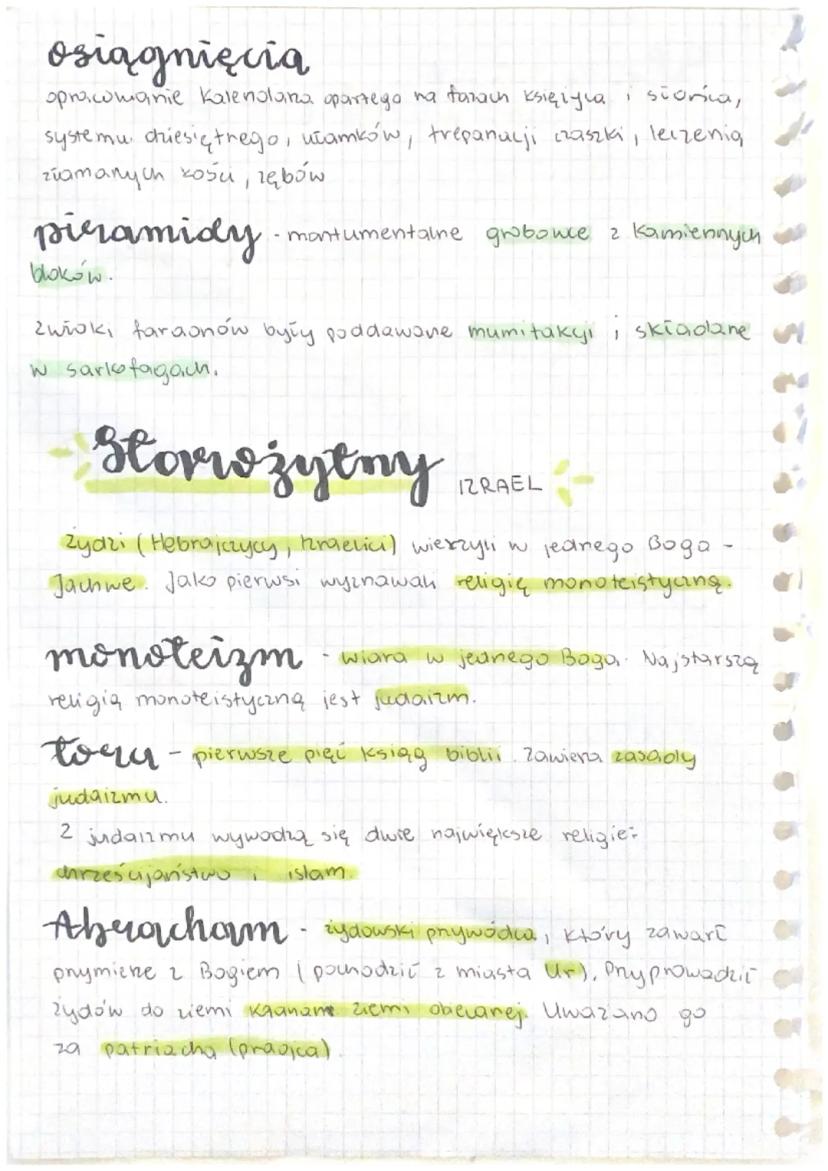 osiągnięcia
opracowanie kalendarza opartego na fazach księżyca i słońca,
systemu dziesiętnego, ułamków, trepanacji czaszki, leczenia
złamanych kości, zębów
piramidy - montumentalne grobowce z kamiennych
bloków.
Zwłoki faraonów były poddawane mumifakcji i składane
w sarkofagach.
Starożytny IZRAEL
Żydzi (Hebrajczycy, Izraelici) wierzyli w jednego Boga -
Jachwe. Jako pierwsi wyznawali religię monoteistyczną.
monoteizm - wiara w jednego Boga. Najstarszą
religią monoteistyczną jest judaizm.
tora - pierwsze pięć ksiąg biblii. Zawiera zasady
judaizmu.
Z judaizmu wywodzą się dwie największe religie:
chrześcijaństwo i islam.
Abracham - żydowski przywódca, który zawarł
przymierze z Bogiem (pochodził z miasta Ur). Przyprowadził
żydów do ziemi Kaanam ziemi obiecanej. Uważano go
za patriacha (praojca).